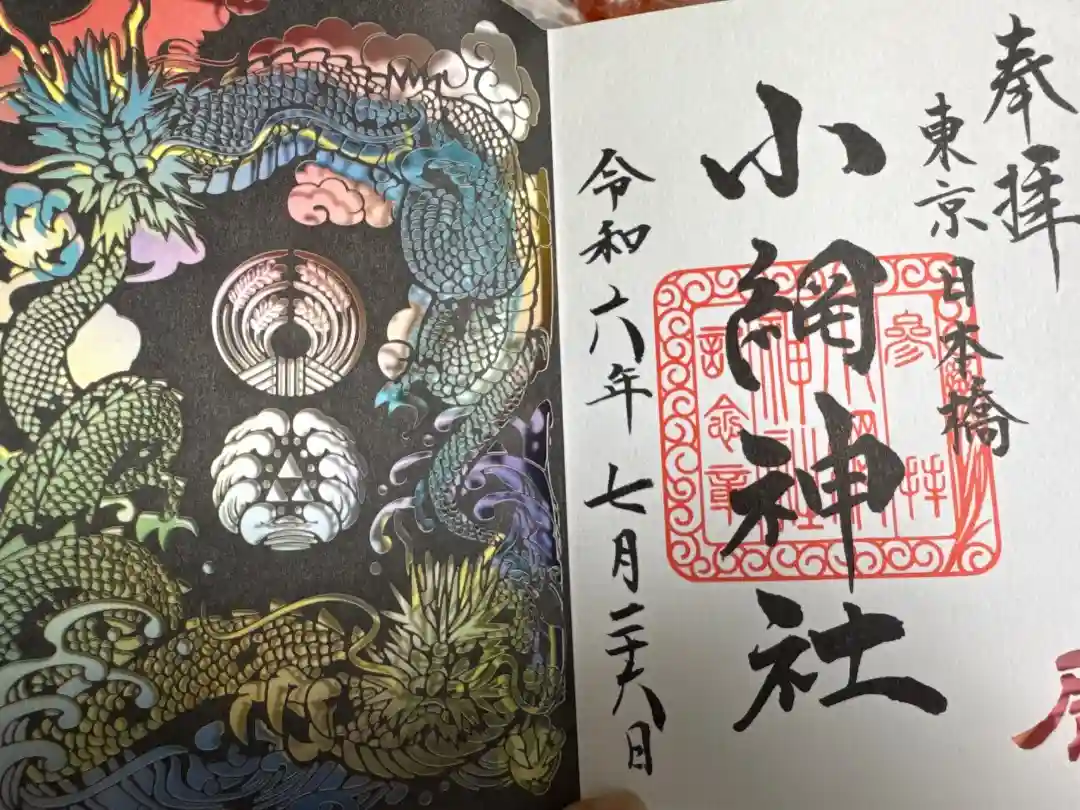 奉拝
東京
日本橋
小網神社
参拝
小網
神社
記念章
令和六年七月二十六日